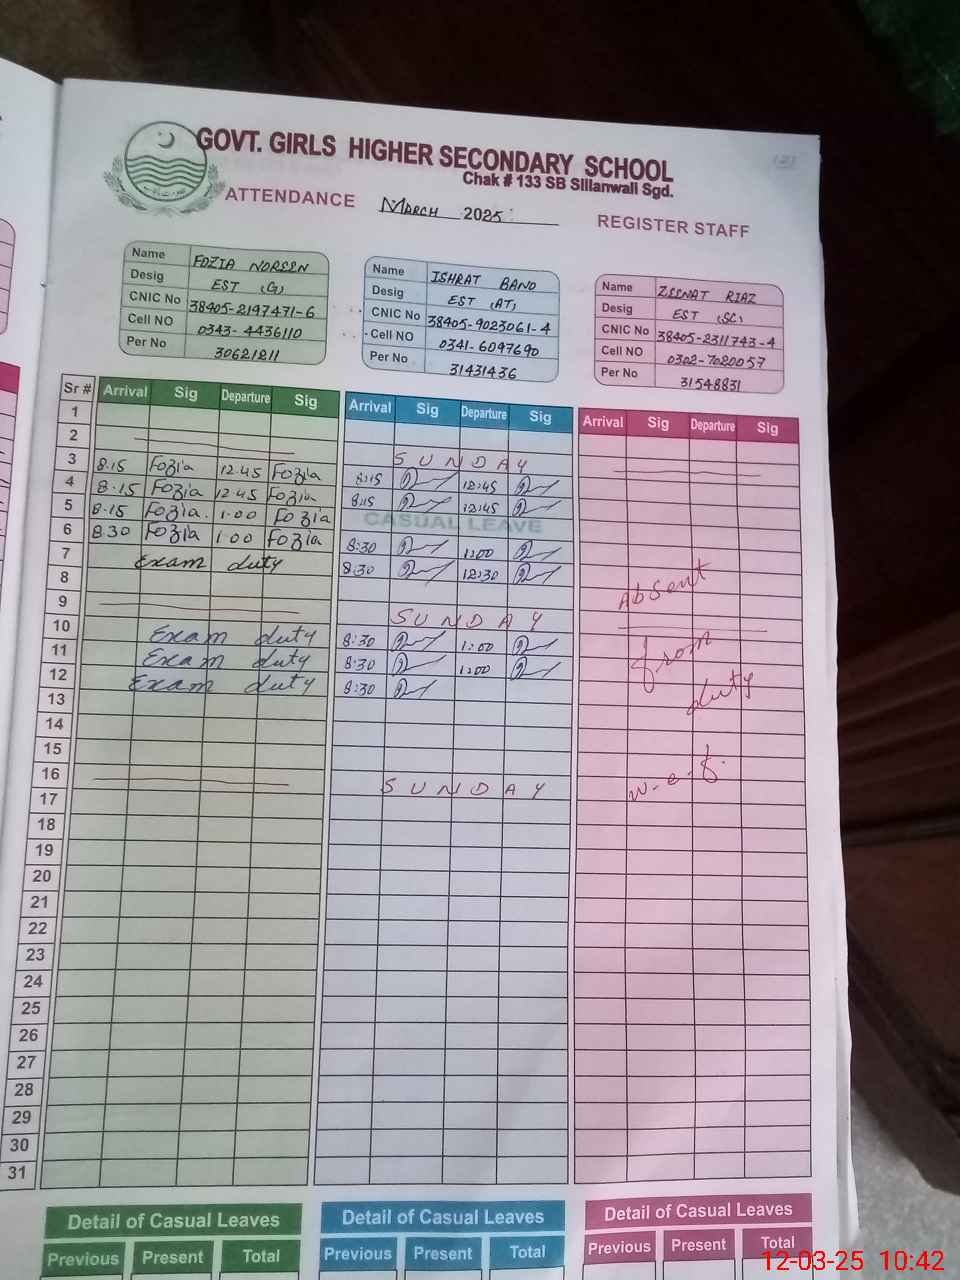 GOVT. GIRLS HIGHER SECONDARY SCHOOL
Chak # 133 SB Sillanwali Sgd.
ATTENDANCE MARCH 2025 REGISTER STAFF
Name FOZIA NOREEN
Desig EST (G)
CNIC No 38405-2197471-6
Cell NO 0343-4436110
Per No 30621211
Name ISHRAT BANO
Desig EST (AT)
CNIC No 38405-9023061-4
Cell NO 0341-6097690
Per No 31431436
Name ZEENAT RIAZ
Desig EST (SC)
CNIC No 38405-2311743-4
Cell NO 0302-7020057
Per No 31548831
Sr # Arrival Sig Departure Sig Arrival Sig Departure Sig Arrival Sig Departure Sig
1
2 SUNDAY
3 8.15 Fozia 12.45 Fozia 8:15 12:45
4 8.15 Fozia 12.45 Fozia 8:15 12:45
5 8.15 Fozia. 1.00 Fozia CASUAL LEAVE
6 8.30 Fozia 1.00 Fozia 8:30 1:00
7 Exam duty 8:30 12:30
8 Absent
9 SUNDAY
10 Exam duty 8:30 1:00 from
11 Exam duty 8:30 1:00
12 Exam duty 8:30 duty
13
14
15
16 SUNDAY w.e.f.
17
18
19
20
21
22
23
24
25
26
27
28
29
30
31
Detail of Casual Leaves Detail of Casual Leaves Detail of Casual Leaves
Previous Present Total Previous Present Total Previous Present Total
12-03-25 10:42